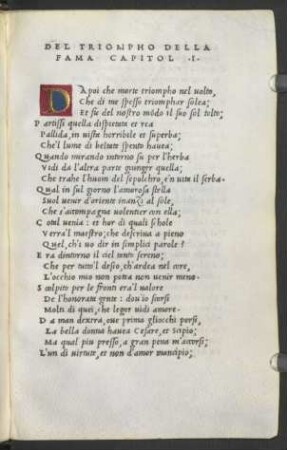 DEL TRIOMPHO DELLA
FAMA CAPITOL .I.
DA poi che morte triompho nel uolto,
Che di me stesso triomphar solea;
Et fu del nostro mōdo il suo sol tolto;
Partissi quella dispietata et rea
Pallida in uista horribile et superba;
Che'l lume di beltate spento hauea;
Quando mirando intorno su per l'herba
Vidi da l'altra parte giunger quella;
Che trahe l'huom del sepulchro, e'n uita il serba.
Qual in sul giorno l'amorosa stella
Suol uenir d'oriente inanzi al sole,
Che s'accompagna uolentier con ella;
Cotal uenia: et hor di quali schole
Verra'l maestro; che descriua a pieno
Quel, ch'i uo dir in simplici parole?
Era dintorno il ciel tanto sereno;
Che per tutt'l desio, ch'ardea nel core,
L'occhio mio non potea non uenir meno.
Scolpito per le fronti era'l ualore
De l'honorata gente: dou'io scorsi
Molti di quei, che legar uidi amore.
Da man dextra, oue prima gliocchi porsi,
La bella donna hauea Cesare, et Scipio;
Ma qual piu presso, a gran pena m'accorsi;
L'un di uirtute, et non d'amor mancipio;